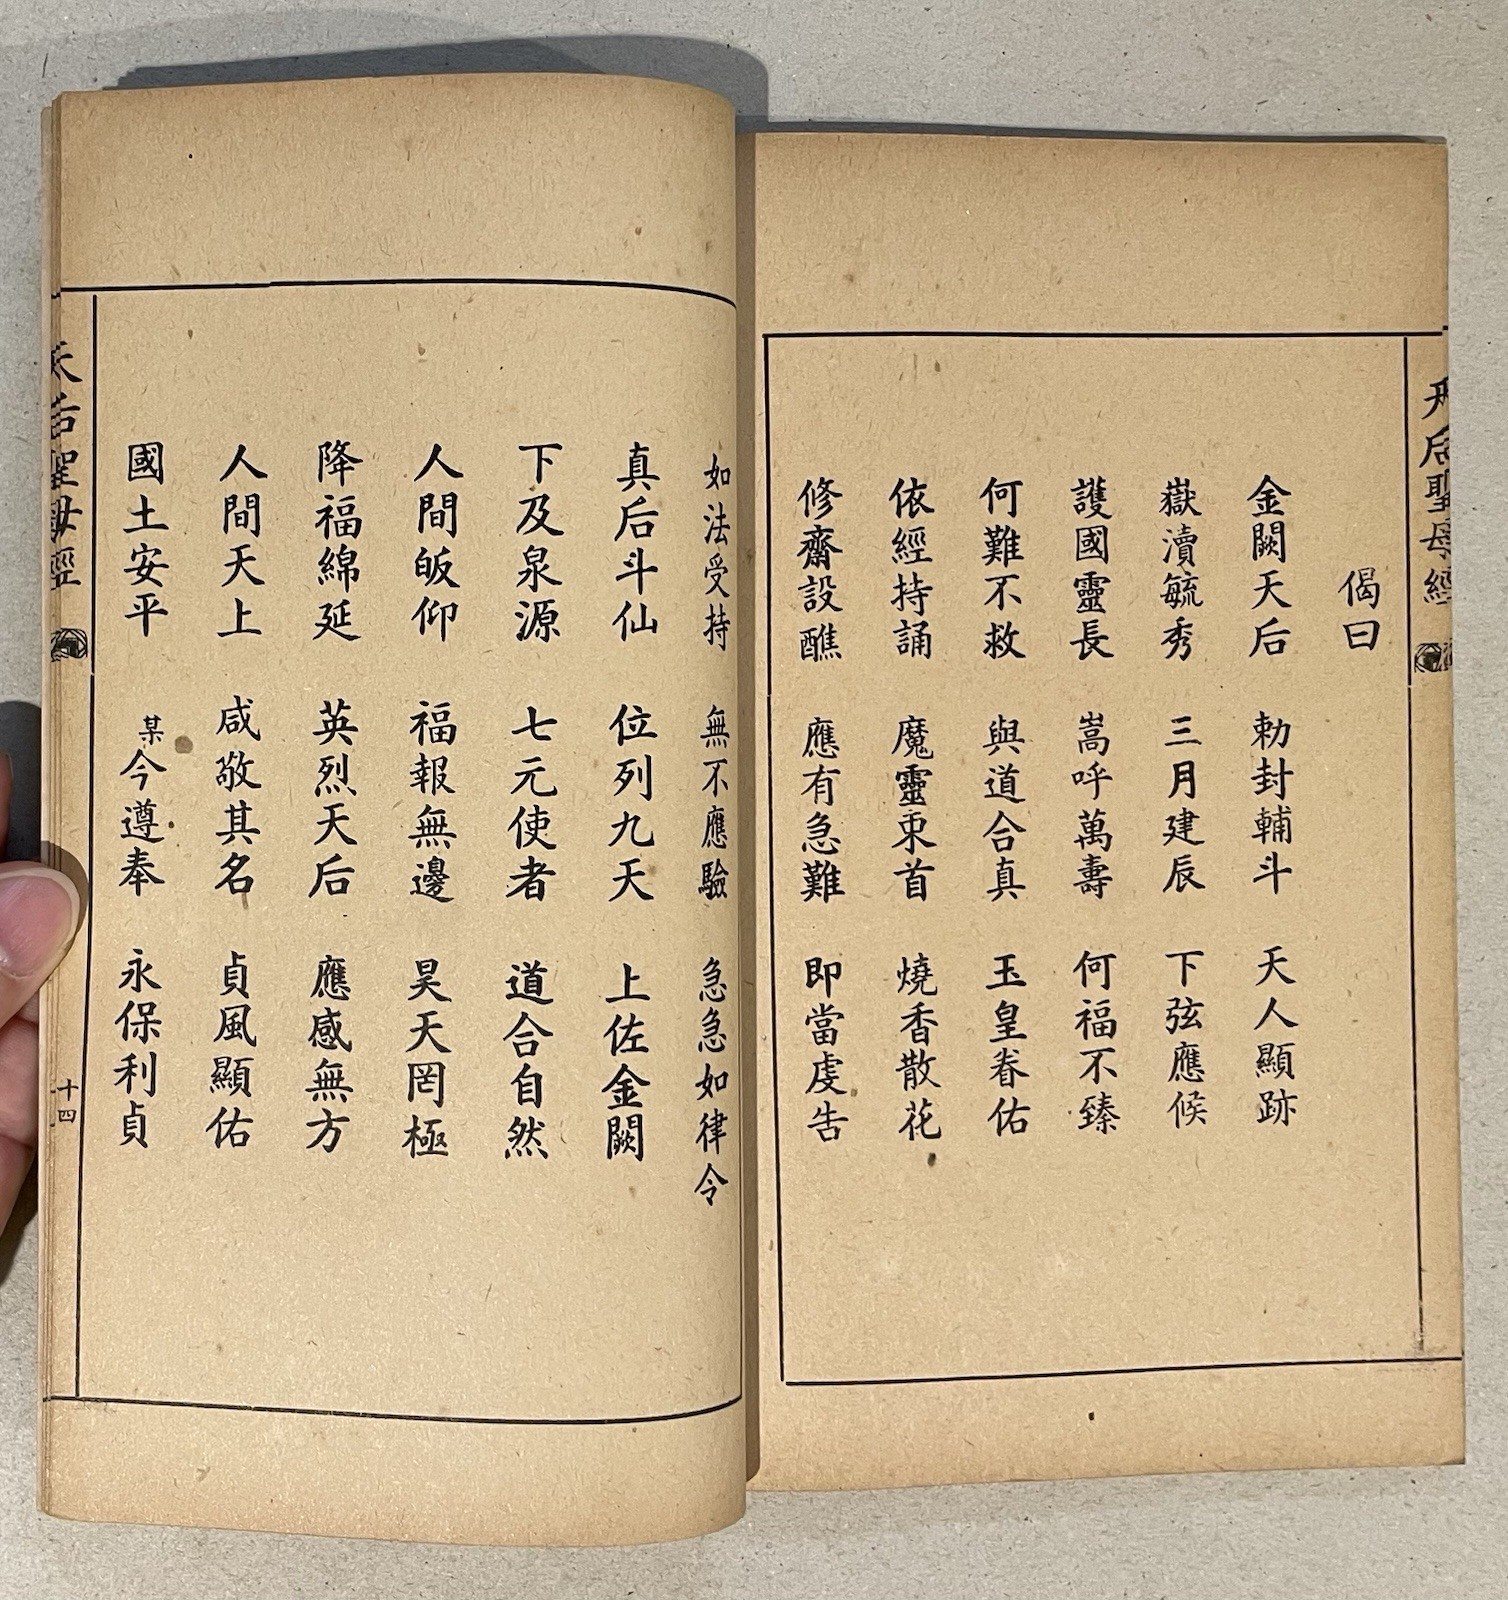 天后聖母經
偈曰
金闕天后 勅封輔斗 天人顯跡
嶽瀆毓秀 三月建辰 下弦應候
護國靈長 嵩呼萬壽 何福不臻
何難不救 與道合真 玉皇眷佑
依經持誦 魔靈束首 燒香散花
修齋設醮 應有急難 即當虔告
如法受持 無不應驗 急急如律令
真后斗仙 位列九天 上佐金闕
下及泉源 七元使者 道合自然
人間皈仰 福報無邊 昊天罔極
降福綿延 英烈天后 應感無方
人間天上 咸敬其名 貞風顯佑
國土安平 某今遵奉 永保利貞
天后聖母經
十四